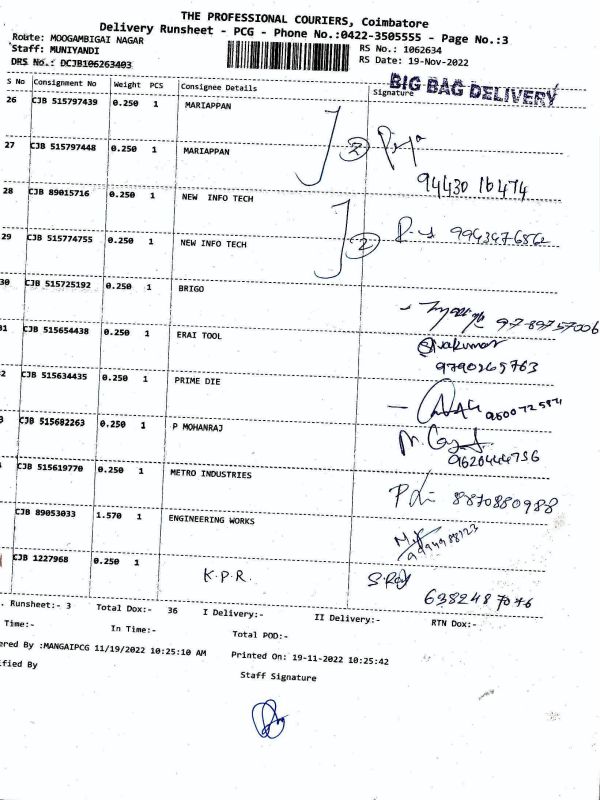 THE PROFESSIONAL COURIERS, Coimbatore
Delivery Runsheet - PCG - Phone No.:0422-3505555 - Page No.:3
Route: MOOGAMBIGAI NAGAR
RS No.: 1062634
Staff: MUNIYANDI
RS Date: 19-Nov-2022
DRS No.: DCJB106263403
BIG BAG DELIVERY
S No Consignment No Weight PCS Consignee Details Signature
26 CJB 515797439 0.250 1 MARIAPPAN
2 Priya
27 CJB 515797448 0.250 1 MARIAPPAN
94430 16474
28 CJB 89015716 0.250 1 NEW INFO TECH
2
29 CJB 515774755 0.250 1 NEW INFO TECH
30 CJB 515725192 0.250 1 BRIGO
97-89757006
31 CJB 515654438 0.250 1 ERAI TOOL
Sivakumar
9790265763
2 CJB 515634435 0.250 1 PRIME DIE
3 CJB 515682263 0.250 1 P MOHANRAJ
9620444736
CJB 515619770 0.250 1 METRO INDUSTRIES
8870880988
CJB 89053033 1.570 1 ENGINEERING WORKS
CJB 1227968 0.250 1 K.P.R.
6382487076
. Runsheet:- 3 Total Dox:- 36 I Delivery:- II Delivery:- RTN Dox:-
Time:- In Time:- Total POD:-
ered By :MANGAIPCG 11/19/2022 10:25:10 AM Printed On: 19-11-2022 10:25:42
ified By Staff Signature